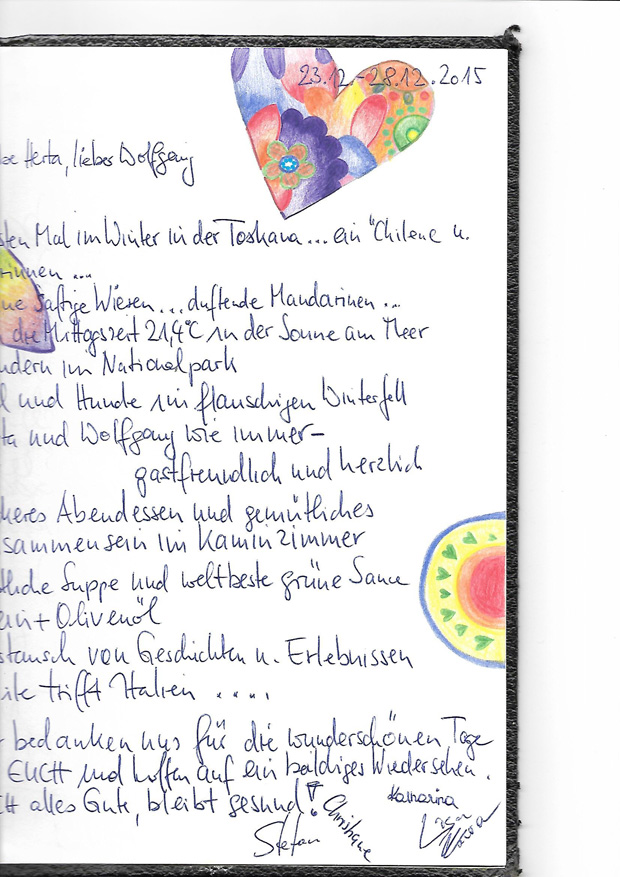 23.12.-28.12.2015
be Herta, lieber Wolfgang
sten Mal im Winter in der Toskana... ein "Chilene u.
rinnen ...
ne Saftige Wiesen... duftende Mandarinen ...
die Mittagszeit 21,4°C in der Sonne am Meer
ndern im Nationalpark
l und Hunde im flauschigen Winterfell
ta und Wolfgang wie immer-
gastfreundlich und herzlich
keres Abendessen und gemütliches
sammensein im Kaminzimmer
tliche Suppe und weltbeste grüne Sauce
ein + Olivenöl
stausch von Geschichten u. Erlebnissen
ile trifft Italien .....
r bedanken uns für die wunderschönen Tage
EUCH und hoffen auf ein baldiges Wiedersehen.
CH alles Gute, bleibt gesund!
Christiane
Katharina
Stefan